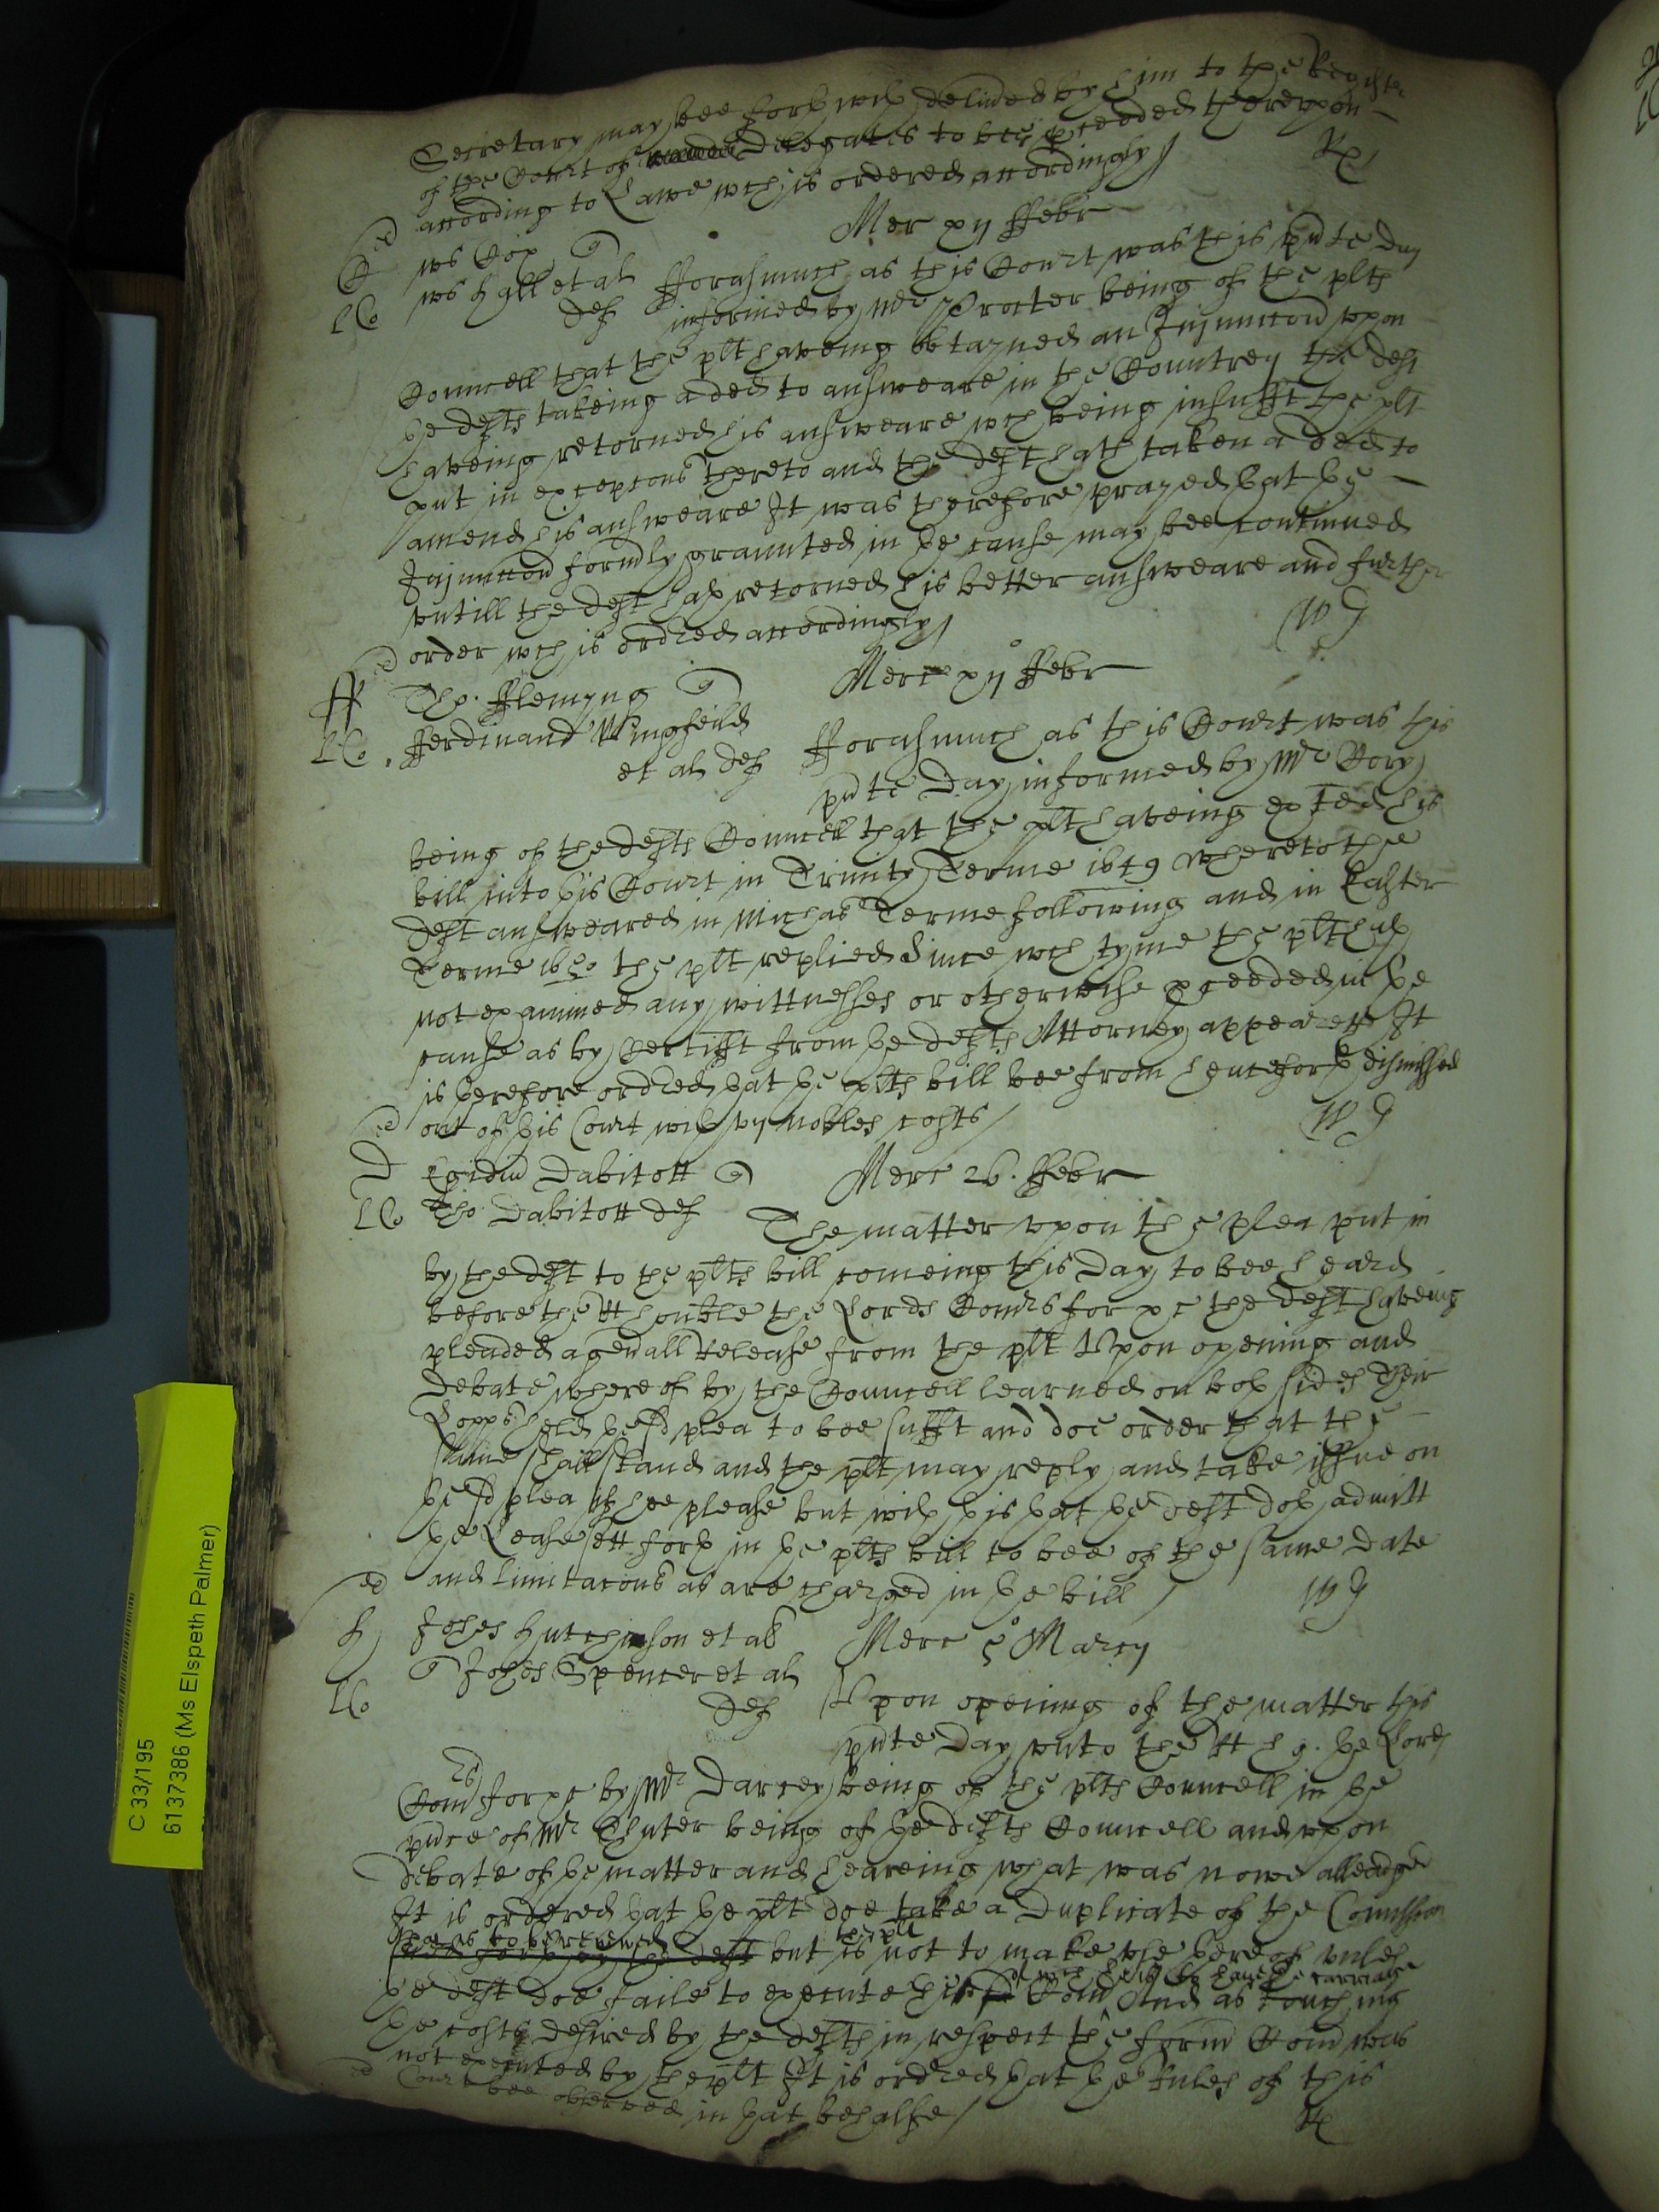 Secretary may bee forthwth delived by him to the Register
of the Court of Delegates to bee pceeded thereupon
according to Lawe wch is ordered accordingly /
Mer xij ffebr
ws Cox
ws hall et al fforasmuch as this Court was this pnte day
def informed by Mr Procter being of the plts
Councell that the plt haveing obtayned an Injunccon upon
ye defts takeing a ded to answeare in the Countrey the deft
haveing retorned his answeare wch being insufft the plt
put in excepcons thereto and the deft hath taken a ded to
amend his answeare It was therefore prayed yat ye
Injunccon formly graunted in ye cause may bee continued
untill the deft hath retorned his better answeare and further
order wch is ordred accordingly /
WG
ff Tho. fflemyng Merc xij ffebr
LCo. fferdinand Wingfeild
et al def fforasmuch as this Court was this
pnte day informed by Mr Cory
being of the defts Councell that the plt haveing exted his
bill into this Court in Trinity Terme 1649 whereto the
deft answeared in Michas Terme following and in Easter
Terme 1650 the plt replied Since wch tyme the plt hath
not examined any wittnesses or otherwise pceeded in ye
cause as by Certifft from ye defts Attorney appeareth It
is therefore ordred yat ye plts bill bee from henceforth dismissed
out of this Court with vij nobles costs /
WG
D Egidiu Dabitott Merc 26. ffebr
LCo Tho Dabitott def The matter upon the plea put in
by the deft to the plts bill comeing this day to bee heard
before the Rt honble the Lords Comrs for &c the deft haveing
pleaded a genall Release from the plt Upon opening and
debate whereof by the Councell learned on both sides Their
Lopps held ye sd plea to bee sufft and doe order that the
same shall stand and the plt may reply and take issue on
ye sd plea if hee please but with this yat ye deft doth admitt
ye Lease sett forth in ye plts bill to bee of the same date
and limitacons as are charged in ye bill /
WG
h Johes hutchinson et al Merc 5 Marcij
Johes Spencer et al
LCo def Upon opening of the matter this
pnte day unto the Rt ho. ye Lords
Comrs for &c by Mr Darcey being of the plts Councell in ye
pnce of Mr Chuter being of ye defts Councell and upon
debate of ye matter and heareing what was nowe alleadged
It is ordered yat ye plt doe take a duplicate of the Comission
that is to bee renewed the plt
but is not to make use thereof unles
of wch hee is to have ye carriage
ye deft doe faile to execute his sd Comn And as touching
ye costs desired by the defts in respect the form Comn was
not executed by the plt It is ordred yat ye Rules of this
Court bee observed in yat behalfe /
C 33/195
6137386 (Ms Elspeth Palmer)